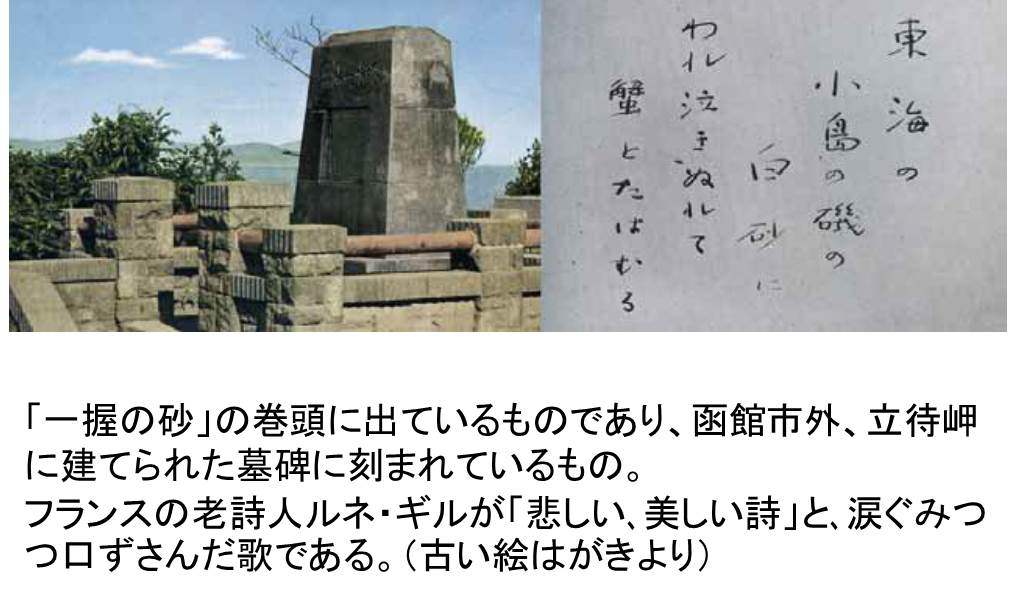 東海の
小島の磯の
白砂に
われ泣きぬれて
蟹とたはむる
「一握の砂」の巻頭に出ているものであり、函館市外、立待岬
に建てられた墓碑に刻まれているもの。
フランスの老詩人ルネ・ギルが「悲しい、美しい詩」と、涙ぐみつ
つ口ずさんだ歌である。（古い絵はがきより）